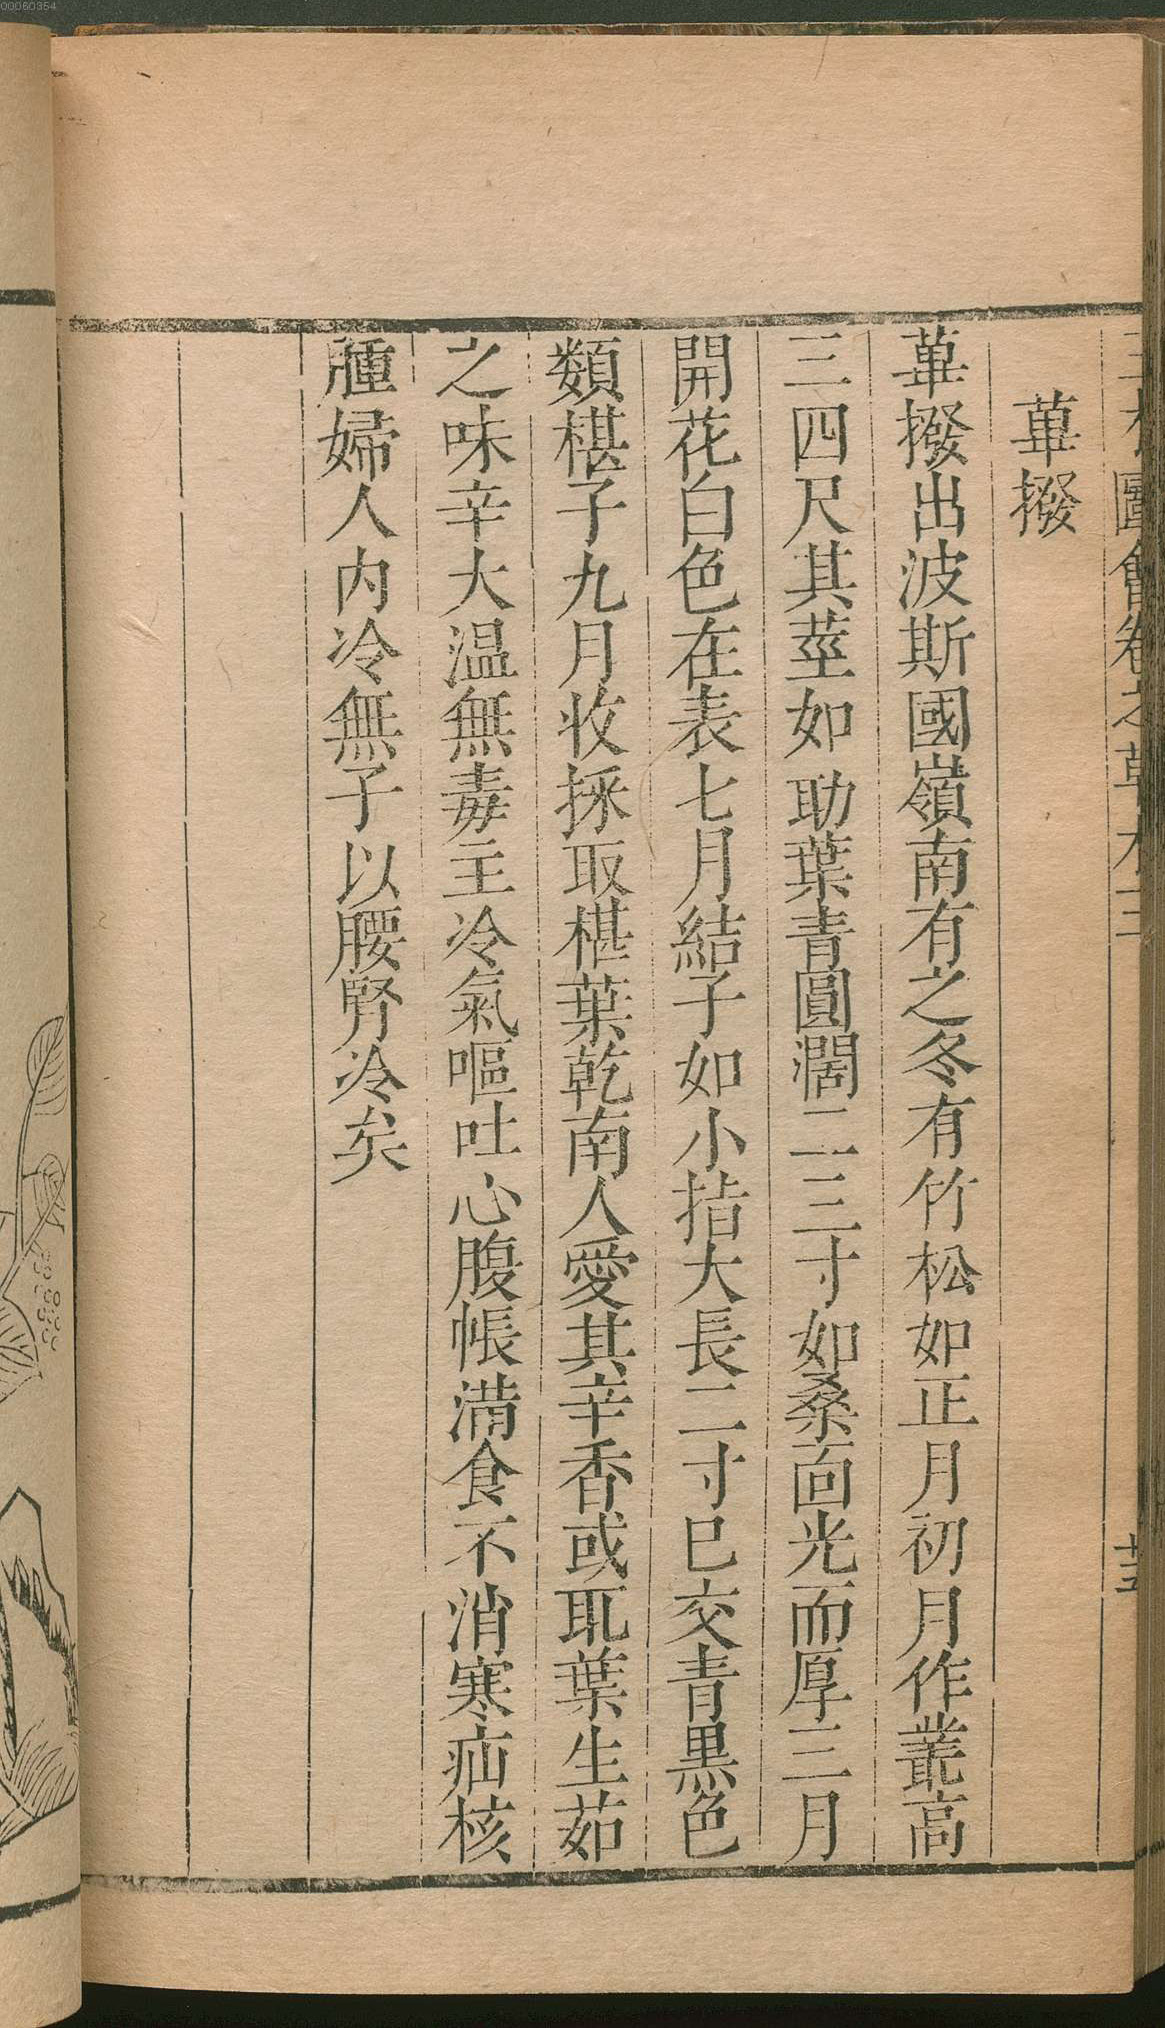 00060354
三才圖會卷之草木三
十五
蓽撥
蓽撥出波斯國嶺南有之冬有竹松如正月初月作叢高
三四尺其莖如助葉青圓濶二三寸如桑面光而厚三月
開花白色在表七月結子如小指大長二寸巳交青黒色
類椹子九月收採取椹葉乾南人愛其辛香或取葉生茹
之味辛大温無毒主冷氣嘔吐心腹帳滿食不消寒疝核
腫婦人内冷無子以腰腎冷矣